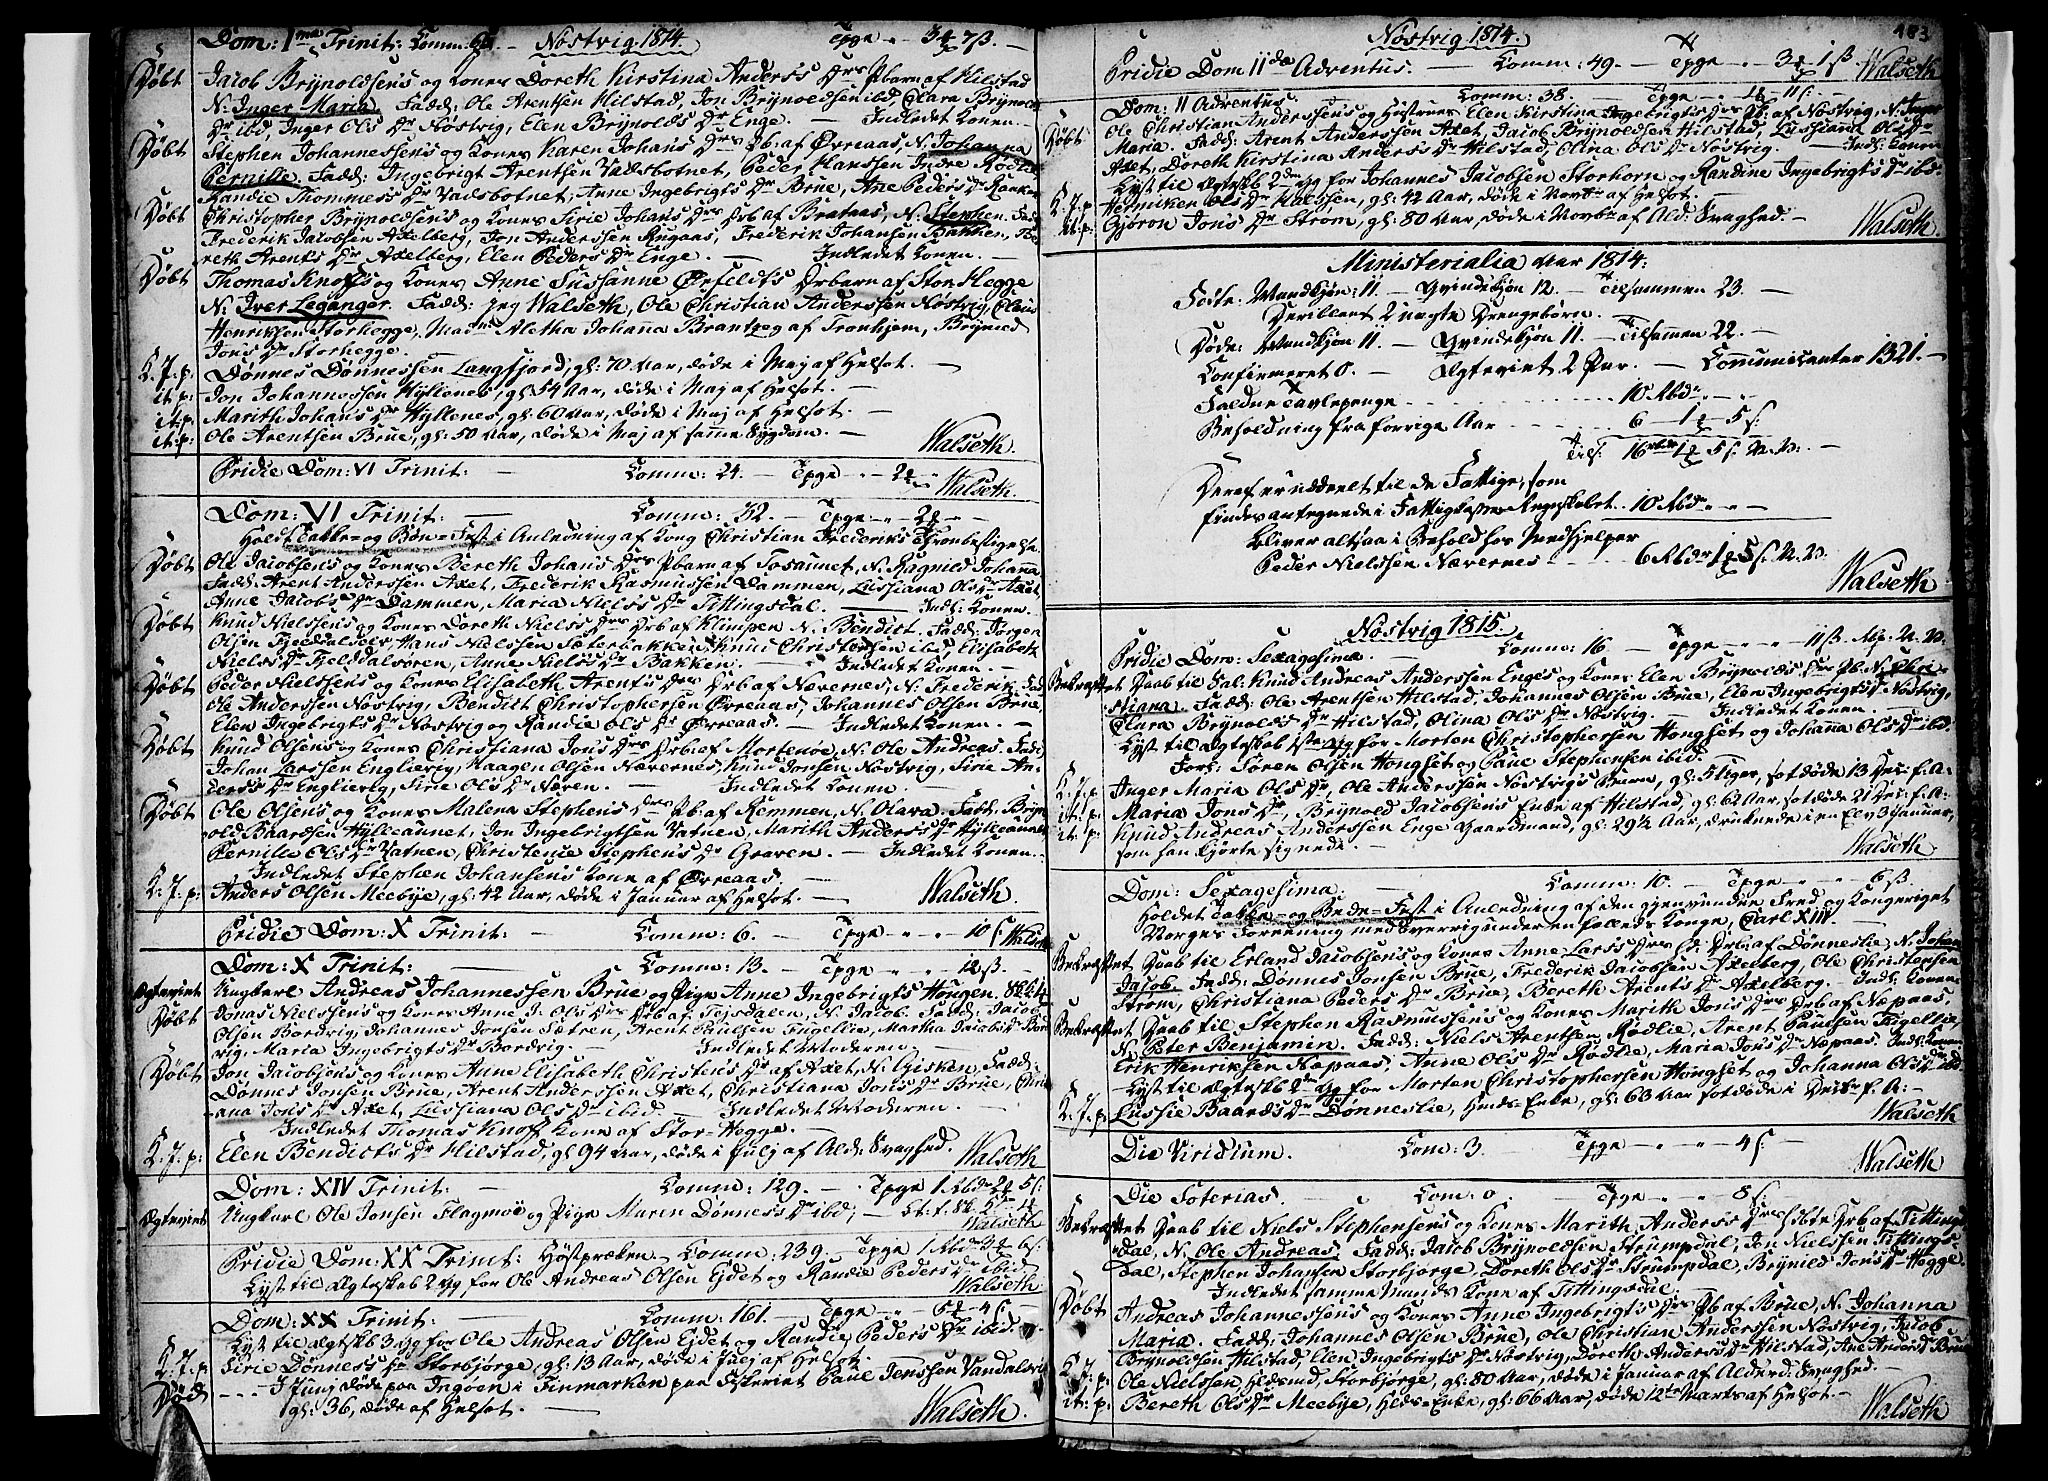 Dom: 1ma Trinit: Comm: 66. — Nöstvig 1814. Tpge „ 3 7 ß. —
Döbt Jacob Brynoldsens og Kones Doreth Kirstina Anders Drs Pbarn af Hilstad
N: Inger Maria. Fadd: Ole Arentsen Hilstad, Jon Brynoldsen ibid, Clara Brynolds
Dr ibid, Inger Ols Dr Nöstvig, Elen Brynolds Dr Enge. — Indledet Konen. —
Döbt Stephen Johannessens og Kones Karen Johans Drs Pb: af Övreaas, N. Johanna
Pernille. Fadd: Ingebrigt Arentsen Vadsbotnet, Peder Hanssen Indre Rödlie
Randie Thommess Dr Vadsbotnet, Anne Ingebrigts Dr Brue, Ane Peders Dr
Döbt Christopher Brynoldsens og Kones Sirie Johans Drs Drb af Brataas, N. Stephen. Fad
Frederik Jacobsen Axelberg, Jon Anderssen Rugaas, Frederik Johansen Bakken,
reth Arents Dr Axelberg, Elen Peders Dr Enge. — Indledet Konen. —
Döbt Thomas Knoffs og Kones Anne Susanne Örfeldts Drbarn af Stor Hegge
N. Iver Leganger. Fadd: jeg Walseth, Ole Christian Anderssen Nöstvig,
Henriksen Storhegge, Madme Aletha Johana Brantzeg af Tronhjem, Brynild
Jons Dr Storhegge. —
K. J. p: Dönnes Dönnessen Langfjord, gl: 70 Aar, döde i Maj af Helsot. —
it: p: Jon Johannessen Hyllenes, gl: 54 Aar, döde i Maj af Helsot. —
it: p: Marith Johans Dr Hyllenes, gl: 60 Aar, döde i Maj af Helsot. —
it: p: Ole Arentsen Brue, gl: 50 Aar, döde i Maj af samme Sygdom. — Walseth.
Pridie Dom: VI Trinit: — Comm: 24. — Tpge „ 2 „ Walseth.
Dom: VI Trinit: — Comm: 32. — Tpge „ 2 —
Holdt Takke= og Bön=Fest i Anledning af Kong Christian Frederiks Tronbestigelse.
Döbt Ole Jacobsens og Kones Bereth Johans Drs Pbarn af Fosaunet, N. Ragnild Johana
Fadd: Arent Anderssen Axet, Frederik Rasmussen Dammen, Lussiana Ols Dr Axet,
Anne Jacobs Dr Dammen, Maria Niels Dr Tittingsdal. — Indl: Konen.
Döbt Knud Nielssens og Kones Doreth Niels Drs Drb af Klimpen N. Bendict. Fadd: Jörgen
Olsen, Hans Nielssen Sæterbakken, Knud Christensen ibid Elisabeth
Niels Dr Fjeldalsören, Anne Niels Dr Bakken. — Indledet Konen. —
Döbt Peder Nielssens og Kones Elisabeth Arents Drs Drb af Nævernes, N. Frederik. Fad
Ole Anderssen Nöstvig, Bendict Christophersen Övreaas, Johannes Olsen Brue,
Elen Ingebrigts Dr Nöstvig og Randie Ols Dr Övreaas — Indledet Konen —
Döbt Knud Olsens og Kones Christiana Jons Drs Drb: af Mortenöe, N. Ole Andreas. Fad:
Johan Larssen Englivig, Haagen Olsen Nævernes, Knud Jonsen Nöstvig, Sirie An-
derss Dr Englivig, Sirie Ols Dr Næren. — Indledet Konen. —
Döbt Ole Olsens og Kones Malena Stephens Drs Pb: af Remmen, N. Olava. Fadd: Bryn-
old Baardsen Hylleaunet, Jon Ingebrigtsen Vatnen, Marith Anders Dr Hylleaunet
Pernille Ols Dr Vatnen, Christense Stephens Dr Graven. — Indledet Konen. —
Indledet Stephen Johansens Kone af Övreaas —
K: J. p: Anders Olsen Meebye, gl: 42 Aar, döde i Januar af Helsot. — Walseth
Pridie Dom: X Trinit: — Comm: 6. — Tpge „ „ 10 ß Walseth
Dom: X Trinit: — Comm: 13. — Tpge „ „ 12 ß. —
Ægteviet Ungkarl Andreas Johannessen Brue og Pige Anne Ingebrigts Hougen.
Döbt Jonas Nielssens og Kones Anne J. Ols Drs Drb: af Tejsdalen, N. Jacob. Fadd: Jacob
Olsen Bordvig, Johannes Jonsen Sætren, Arent Paulsen Fugellie, Martha Jacobs Dr Bord
vig, Maria Ingebrigts Dr Bordvig. — Indledet Moderen. —
Döbt Jon Jacobsens og Kones Anne Elisabeth Christens Dr af Axet, N. Gisken. Fadd:
Dönnes Jonsen Brue, Arent Anderssen Axet, Christiana Jons Dr Brue,
ana Jons Dr Axet, Lussiana Ols Dr ibid. — Indledet Moderen. —
Indledet Thomas Knoffs Kone af Stor=Hegge. —
K. J. p: Elen Bendicts Dr Hilstad, gl 94 Aar, döde i Julj af Ald: Svaghed. Walseth
Dom: XIV Trinit: — Comm: 129. — Tpge 1 Rbdr 2 5 ß:
Ægteviet Ungkarl Ole Jonsen Flagmoe og Pige Maren Dönnes Dr ibid; —
Walseth
Pridie Dom: XX Trinit: Höstpræken. Comm: 239. Tpge 1 Rbdr 3 6 ß:
Lyst til Ægteskab 2 Gg for Ole Andreas Olsen Ejdet og Randie Peders Dr ibid
Walseth
Dom: XX Trinit: — Comm: 161. — Tpge „ 5 4 ß —
Lyst til Ægtskb 3 Gg for Ole Andreas Olsen Ejdet og Randie Peders Dr ibid.
K: J. p Sirie Dönness Dr Storbjorge, gl: 13 Aar, döde i Julj af Helsot. —
Död — I Junj döde paa Ingöen i Finmarken paa Fiskeriet Paul Jenssen Vandalsvig
gl: 36, döde af Helsot. — Walseth.
183
Nöstvig 1814.
Pridie Dom IIda Adventus. — Comm: 49. — Tpge „ 3 1 ß. Walseth
Dom: II Adventus. Comm: 38. Tpge „ 11 ß. —
Döbt Ole Christian Anderssens og Hustrues Elen Kirstina Ingebrigts Drs Pb: af Nöstvig, N. Inger
Maria. Fadd: Arent Anderssen Axet, Jacob Brynoldsen Hilstad, Lussiana Ols Dr
Axet, Doreth Kirstina Anders Dr Hilstad, Olina Ols Dr Nöstvig. — Indl: Konen
Lyst til Ægteskb 2den Gg for Johannes Jacobsen Storborn og Randine Ingebrigts Dr ibid.
K. J. p: Henniken Ols Dr Halssen, gl: 42 Aar, döde i Novbr af Helsot. —
it: p: Gjöron Jons Dr Ström, gl: 80 Aar, döde i Novbr af Ald. Svaghed. — Walseth
Ministerialia Aar 1814:
Födte: Mandkjön: 11. — Qvindekjön 12. — Tilsammen 23. —
Derillent 2 uægte Drengebörn. —
Döde: Mandkjön 11. — Qvindekjön 11. — Tilsammen 22. —
Confirmeret 0. — Ægteviet 2 Par. — Communicenter 1321. —
Faldne Tavlepenge . . . . . 10 Rbdr „ „
Beholdning fra forrige Aar . . . 6 — 1 5 ß:
Tils: 16 Rbdr 1 5 ß N. V. —
Deraf er uddeelt til de Fattige, som
findes antegnede i Fattigkassens Regnskabet . . 10 Rbdr „ „
bliver altsaa i Behold hos Medhjelper
Peder Nielssen Nævernes — . . . 6 Rbdr 1 5 ß N. V.
Walseth
Nöstvig 1815.
Pridie Dom: Sexagesima. — Comm: 16. — Tpge „ „ 11 ß. Rbp: N. V.
Bekræftet Daab til Sal: Knud Andreas Anderssen Enges og Kones Elen Brynolds Drs Pb. N. Chri-
stiana. Fadd: Ole Arentsen Hilstad, Johannes Olsen Brue, Elen Ingebrigts Dr Nöstvig,
Clara Brynolds Dr Hilstad, Olina Ols Dr Nöstvig. — Indledet Konen. —
Lyst til Ægteskab 1ste Gg for Morten Christophersen Hongset og Johana Ols Dr ibid.
Forl: Sören Olsen Hongset og Paul Stephensen ibid.
K. J. p. Inger Maria Ols Dr, Ole Anderssen Nöstvigs Barn, gl: 5 Uger, sot döde 13 Dec: f. A:
it. p: Maria Jons Dr, Brynold Jacobsens Enke af Hilstad, gl: 62 Aar, sot döde 21 Dec: f. A:
it. p: Knud Andreas Anderssen Enge Gaardmand, gl: 29½ Aar, druknede i en Elv 3 Januar,
som han kjörte signede. — Walseth
Dom: Sexagesima. — Comm: 10. — Tpge „ „ 6 ß. —
Holdet Takke= og Bede=Fest i Anledning af den gjenvundne Fred og Kongeriget
Norges Forreening med Sverrig under en fælleds Konge, Carl XIII. —
Bekræftet Daab til Erland Jacobsens og Kones Anne Lars Drs Drb: af Dönneslie, N. Johan
Jacob. Fadd: Dönnes Jonsen Brue, Frederik Jacobsen Axelberg, Ole Christensen
Ström, Christiana Peders Dr Brue, Bereth Arents Dr Axelberg. — Indl: Konen
Bekræftet Daab til Stephen Rasmussens og Kones Marith Jons Drs Drb af Næpaas.
N. Peter Benjamin. Fadd: Niels Arentsen Rödlie, Arent Paulsen Fugellie,
Erik Henriksen Næpaas, Anne Ols Dr Rödlie, Maria Jons Dr Næpaas. Indl: Konen
Lyst til Ægteskb 2den Gg for Morten Christophersen Hongset og Johanna Ols Dr ibid.
K. J. p: Lussie Baards Dr Dönneslie, Huds=Enke, gl: 63 Aar sot döde i Decbr f. A: —
Walseth
Die Viridium. Com: 3. — Tpge „ „ 4 ß — Walseth
Die Soterias. Com: 0. — Tpge „ „ 8 ß: —
Bekræftet Daab til Niels Stephensens og Kones Marith Anders Drs Drb af Tittings
dal, N. Ole Andreas. Fadd: Jacob Brynoldsen Strumpdal, Jon Nielssen Tittings-
dal, Stephen Johansen Storbjorge, Doreth Ols Dr Strumpdal, Brynild Jons Dr Hegge.
Indledet samme Mands Kone af Tittingsdal. —
Döbt Andreas Johannessens og Kones Anne Ingebrigts Drs Pb af Brue, N. Johanna
Maria. Fadd: Johannes Olsen Brue, Ole Christian Anderssen Nöstvig, Jacob
Brynoldsen Hilstad, Elen Ingebrigts Dr Nöstvig, Doreth Anders Dr Hilstad, Ane Anders Dr Brue
K. J. p: Ole Nielssen, Storbjorge, gl: 80 Aar, döde i Januar af Alderd: Svaghed. —
it: p: Bereth Ols Dr Meebye, Huds=Enke, gl: 66 Aar, döde 12te Marts af Helsot. — Walseth